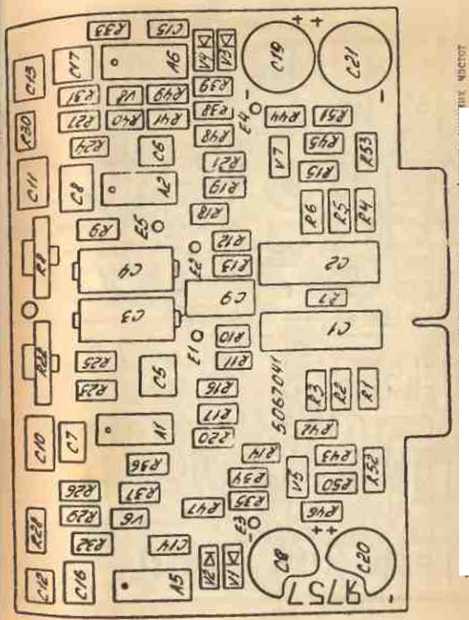 R33
C15
C13
C17
A6
V4
V3
C19
C21
R31
V8
R49
R39
R30
R27
R40
R41
R38
E4
R44
R51
R24
C6
R48
R45
R53
R21
V7
R15
C11
C8
A2
R19
R18
R6
R5
R4
R9
E5
R12
R8
C4
E2
R13
C2
C3
C9
R7
C1
R22
R10
E1
R11
R25
C5
R23
R16
5067041
R3
R2
R1
R17
R20
R42
C10
C7
A1
R14
R43
R52
R36
R34
V5
R50
R26
R37
R35
R28
R29
V6
R47
R46
E3
R32
C14
C20
C12
C16
A5
V2
V1
Я757
них частот